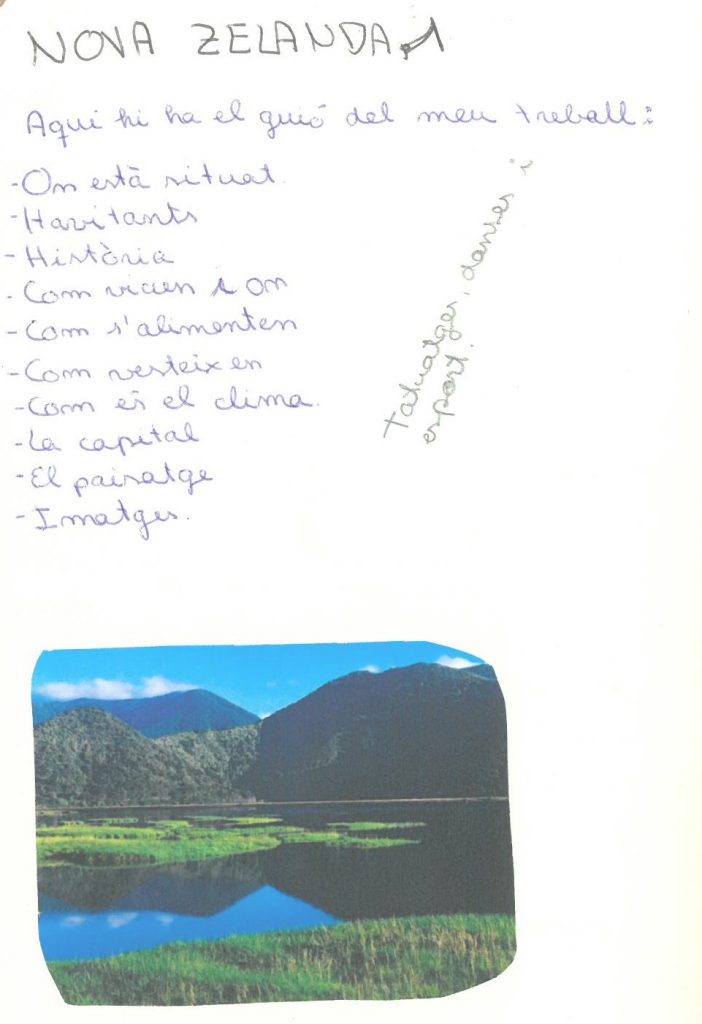 NOVA ZELANDA
Aqui hi ha el guió del meu treball:
-On està situat.
-Havitants
-Història
-Com viuen i on
-Com s'alimenten
-Com vesteixen
-Com és el clima.
-La capital
-El paisatge
-Imatges.
tatuatges, danses i
esport.